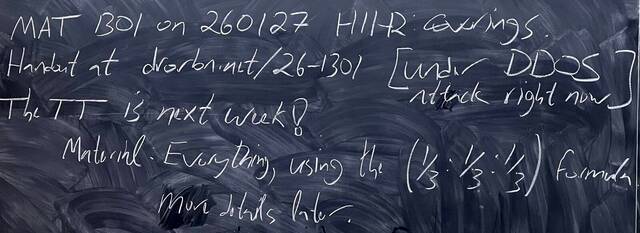 MAT 1301 on 260127 H11-12: coverings.
Handout at drorbn.net/26-1301 [under DDOS
attack right now]
The TT is next week!
Material: Everything, using the (1/3:1/3:1/3) formula
More details later.